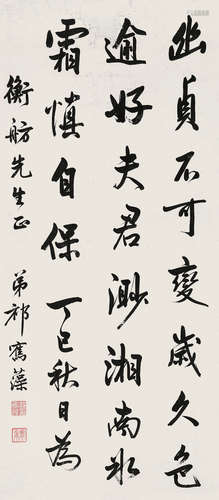 幽貞不可變歲久色
逾好夫君湘南水
霜慎自保 丁巳秋日為
衡舫先生正 弟祁寯藻